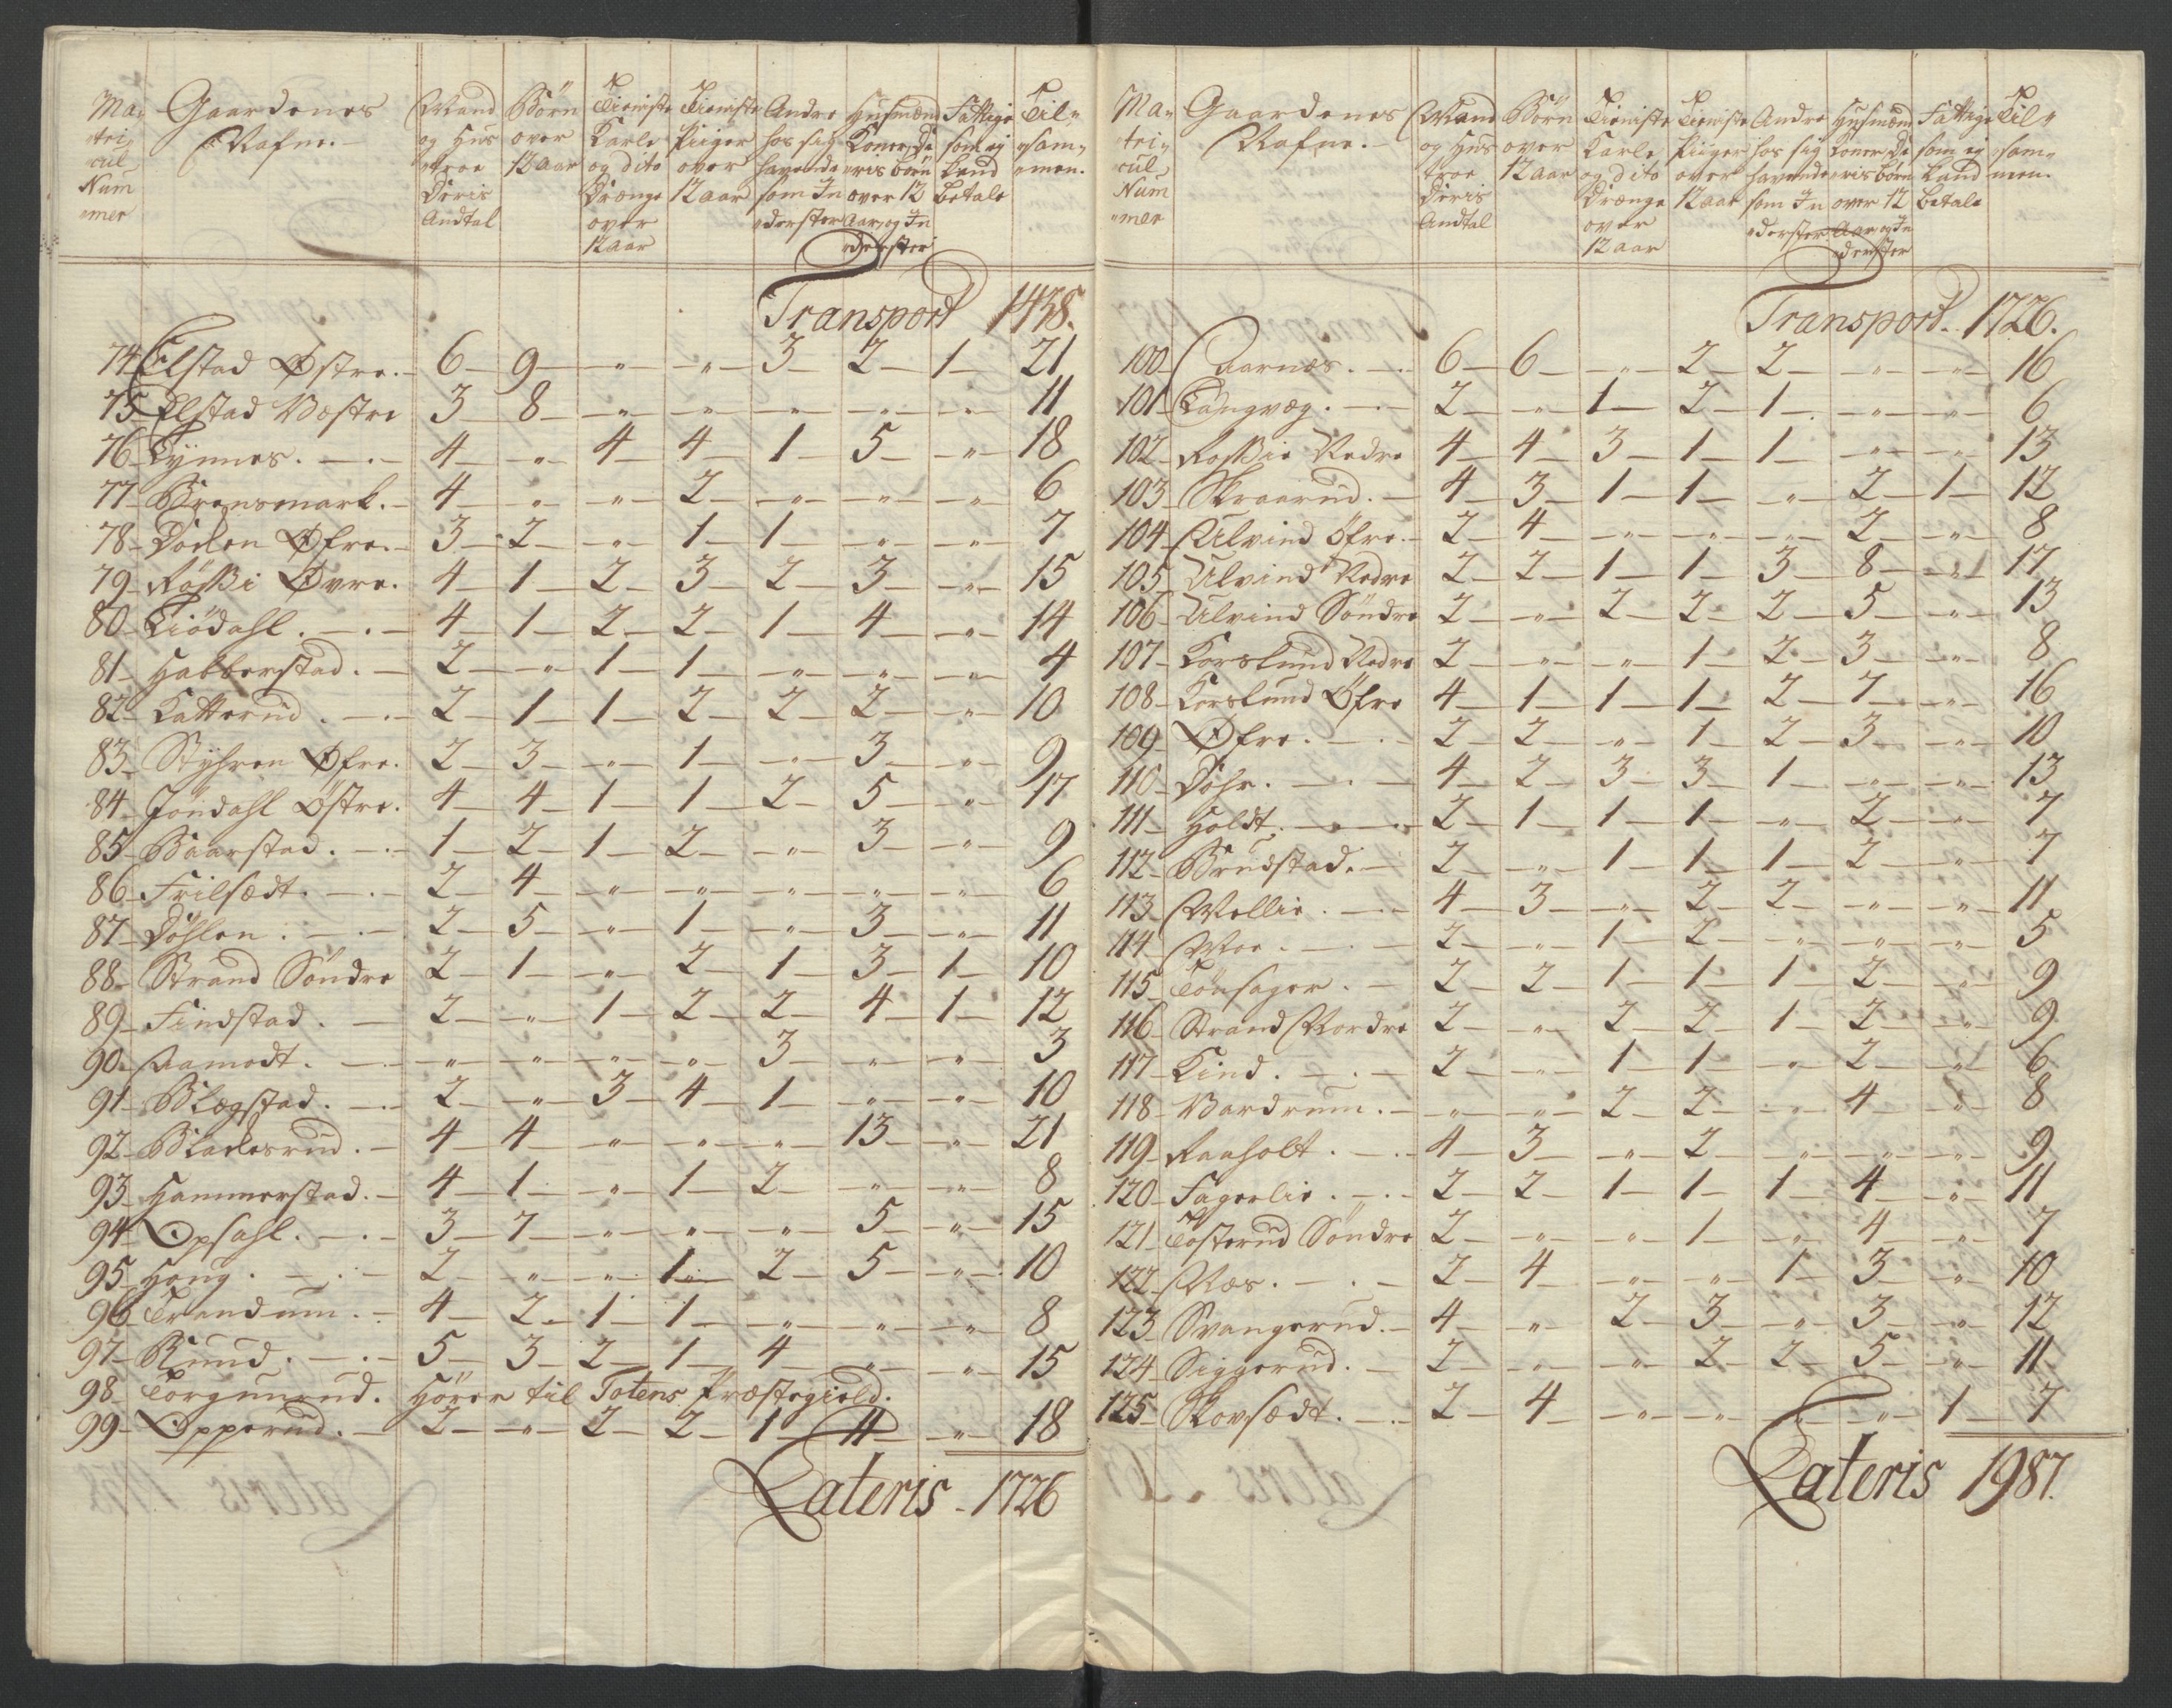 Ma= Gaardenes Mand Börn Tieniste Tieniste Andre Husmænd Fattige Til=
tri= Nafne.- og Hus over Karle Piiger hos sig Koner, De som ej sam=
cul troe 12 Aar og dito over havende eris börn kand men.
Num Deris Drænge 12 aar som In over 12 betale
mer Andtal over derster Aar, og In
12 aar derster
Transport 1438.
74 Elstad Østre.- 6 - 9 - " - " - 3 - 2 - 1 - 21
75 Elstad Væstre 3 - 8 - " - " - " - " - " - 11
76 Lÿnnes. 4 - " - 4 - 4 - 1 - 5 - " - 18
77 Brensmark.- 4 - " - " - 2 - " - " - " - 6
78 Doden Øfre.- 3 - 2 - " - 1 - 1 - " - " - 7
79 Rössi Øvre. 4 - 1 - 2 - 3 - 2 - 3 - " - 15
80 Liödahl. 4 - 1 - 2 - 2 - 1 - 4 - " - 14
81 Habberstad. 2 - " - 1 - 1 - " - " - " - 4
82 Katterud. 2 - 1 - 1 - 2 - 2 - 2 - " - 10
83 Stÿhren Øfre. 2 - 3 - " - 1 - " - 3 - " - 9
84 Jöndahl Östre. 4 - 4 - 1 - 1 - 2 - 5 - " - 17
85 Baarstad. 1 - 2 - 1 - 2 - " - 3 - " - 9
86 Frilsædt. 2 - 4 - " - " - " - " - " - 6
87 Döhlen. 2 - 5 - " - 1 - " - 3 - " - 11
88 Strand Söndre 2 - 1 - " - 2 - 1 - 3 - 1 - 10
89 Findstad. 2 - " - 1 - 2 - 2 - 4 - 1 - 12
90 Aamodt. " - " - " - " - 3 - " - " - 3
91 Blegstad. 2 - " - 3 - 4 - 1 - " - " - 10
92 Bladesrud. 4 - 4 - " - " - " - 13 - " - 21
93 Hammerstad. 4 - 1 - " - 1 - 2 - " - " - 8
94 Opsahl. 3 - 7 - " - " - " - 5 - " - 15
95 Houg. 2 - " - " - 1 - 2 - 5 - " - 10
96 Trandum. 4 - 2 - 1 - 1 - " - " - " - 8
97 Rund. 5 - 3 - 2 - 1 - 4 - " - " - 15
98 Torgunrud. Hörer til Totens Præstegield.
99 Opperud. 2 - " - 2 - 2 - 1 - 11 - " - 18
Lateris - 1726
Ma= Gaardenes Mand Börn Tieniste Tieniste Andre Husmænd Fattige Til=
tri= Nafne.- og Hus over Karle Piiger hos sig Koner De som ej sam=
cul troe 12 Aar og dito over havende eris börn kand men.
Num Deris Drænge 12 aar som In over 12 betale
mer Andtal over derster Aar og In
12 aar derster
Transport. 1726.
100 Aarnæs. 6 - 6 - " - 2 - 2 - " - " - 16
101 Langvæg. 2 - " - 1 - 2 - 1 - " - " - 6
102 Rossie Nedre 4 - 4 - 3 - 1 - 1 - " - " - 13
103 Skraarud. 4 - 3 - 1 - 1 - " - 2 - 1 - 12
104 Ulvind Öfre. 2 - 4 - " - " - " - 2 - " - 8
105 Ulvind Nedre 2 - 2 - 1 - 1 - 3 - 8 - " - 17
106 Ulvind Söndre 2 - " - 2 - 2 - 2 - 5 - " - 13
107 Korslund Nedre 2 - " - " - 1 - 2 - 3 - " - 8
108 Korslund Öfre 4 - 1 - 1 - 1 - 2 - 7 - " - 16
109 Øfre. 2 - 2 - " - 1 - 2 - 3 - " - 10
110 Dohr. 4 - 2 - 3 - 3 - 1 - " - " - 13
111 Holdt. 2 - 1 - 1 - 1 - " - 2 - " - 7
112 Brudstad. 2 - " - 1 - 1 - 1 - 2 - " - 7
113 Mellie. 4 - 3 - " - 2 - 2 - " - " - 11
114 Moe. 2 - " - 1 - 2 - " - " - " - 5
115 Tönsager. 2 - 2 - 1 - 1 - 1 - 2 - " - 9
116 Strand Nordre 2 - " - 2 - 2 - 1 - 2 - " - 9
117 Lind. 2 - " - 1 - 1 - " - 2 - " - 6
118 Vardrum. " - " - 2 - 2 - " - 4 - " - 8
119 Raaholt. 4 - 3 - " - 2 - " - " - " - 9
120 Fagerlie. 2 - 2 - 1 - 1 - 1 - 4 - " - 11
121 Tosterud Söndre 2 - " - " - 1 - " - 4 - " - 7
122 Næs. 2 - 4 - " - " - 1 - 3 - " - 10
123 Svangerud. 4 - " - 2 - 3 - " - 3 - " - 12
124 Siggerud. 2 - " - " - 2 - 2 - 5 - " - 11
125 Skovsædt. 2 - 4 - " - " - " - " - 1 - 7
Lateris 1987.